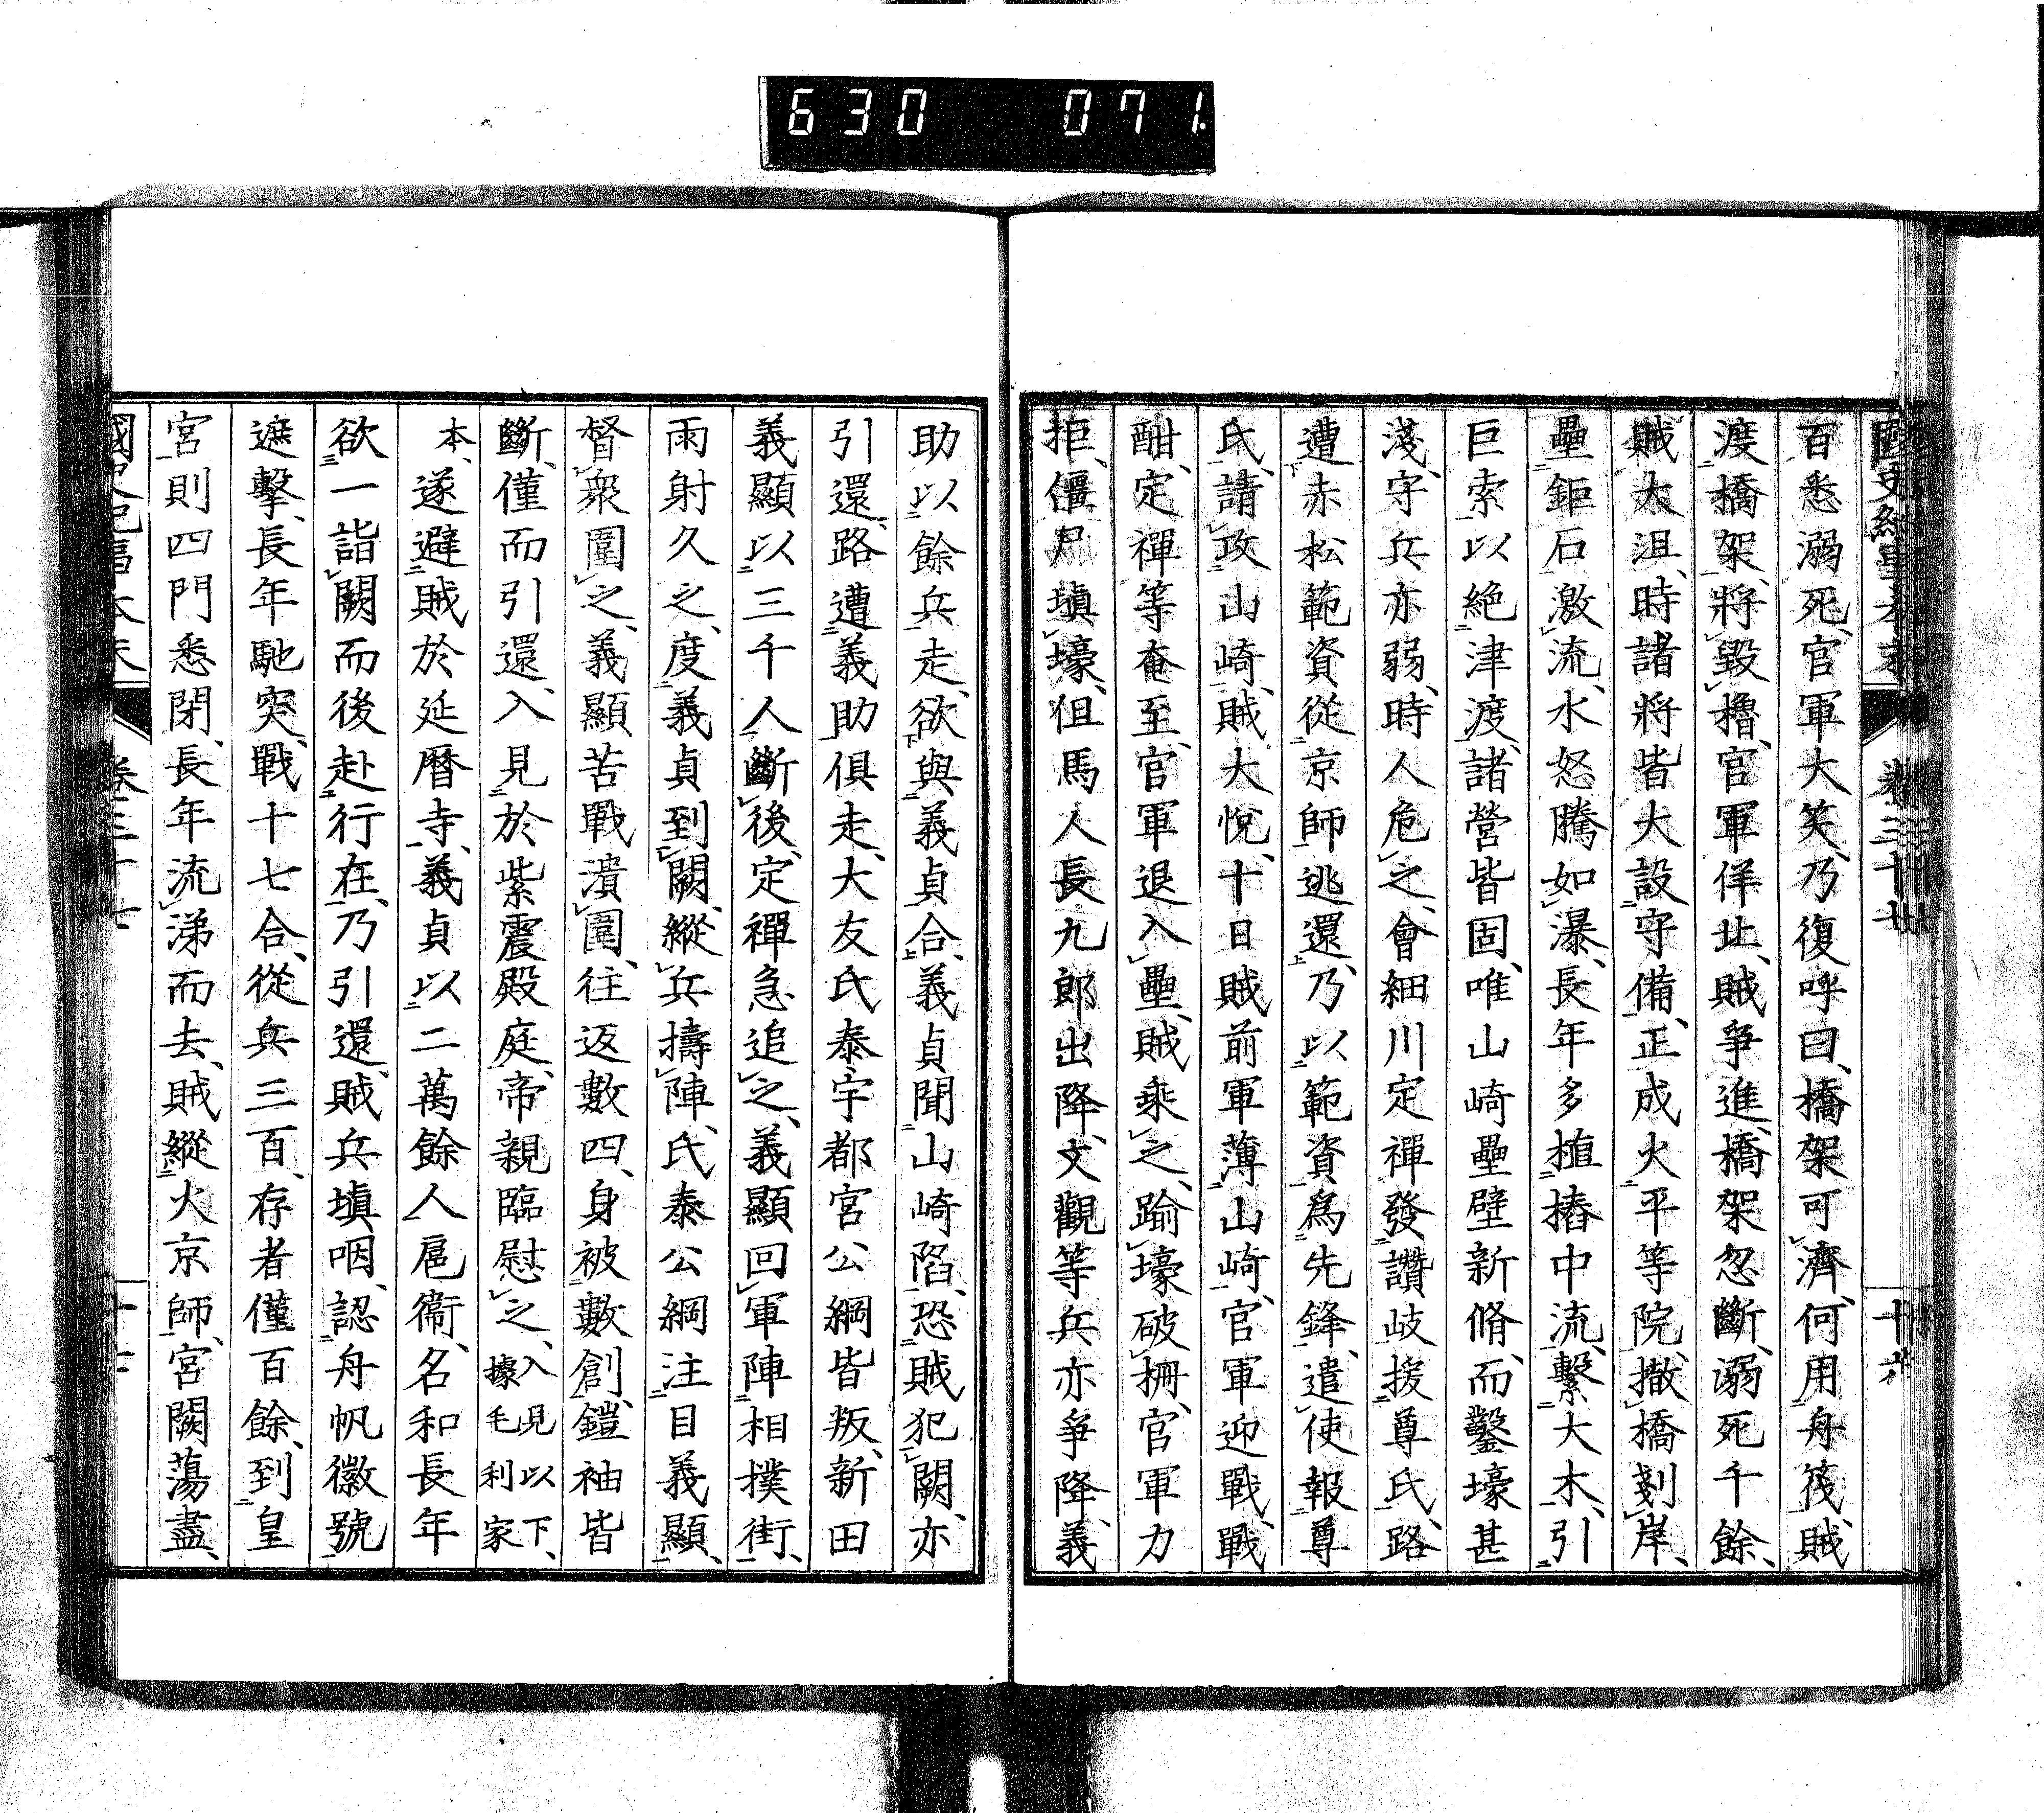 630 071.
百悉溺死、官軍大笑、乃復呼曰、橋架可濟、何用舟筏、賊
渡橋架、將毀櫓、官軍佯北、賊爭進、橋架忽斷、溺死千餘、
賊大沮、時諸將皆大設守備、正成火平等院、撤橋剗岸、
壘鉅石激流、水怒騰如瀑、長年多植樁中流、繫大木、引
巨索以絶津渡、諸營皆固、唯山崎壘壁新脩、而鑿壕甚
淺、守兵亦弱、時人危之、會細川定禪發讚岐援尊氏、路
遭赤松範資從京師逃還、乃以範資爲先鋒、遣使報尊
氏、請攻山崎、賊大悅、十日賊前軍薄山崎、官軍迎戰、戰
酣、定禪等奄至、官軍退入壘、賊乘之、踰壕破柵、官軍力
拒、僵尸塡壕、但馬人長九郎出降、文觀等兵亦爭降、義
助以餘兵走、欲與義貞合、義貞聞山崎陷、恐賊犯闕、亦
引還、路遭義助俱走、大友氏泰宇都宮公綱皆叛、新田
義顯以三千人斷後、定禪急追之、義顯回軍陣相撲街、
雨射久之、度義貞到闕、縱兵擣陣、氏泰公綱注目義顯、
督衆圍之、義顯苦戰潰圍、往返數四、身被數創、鎧袖皆
斷、僅而引還、入見於紫震殿庭、帝親臨慰之、入見以下、據毛利家
本、遂避賊於延曆寺、義貞以二萬餘人扈衞、名和長年
欲一詣闕而後赴行在、乃引還、賊兵塡咽、認舟帆徽號
遮擊、長年馳突、戰十七合、從兵三百、存者僅百餘、到皇
宮則四門悉閉、長年流涕而去、賊縱火京師、宮闕蕩盡、